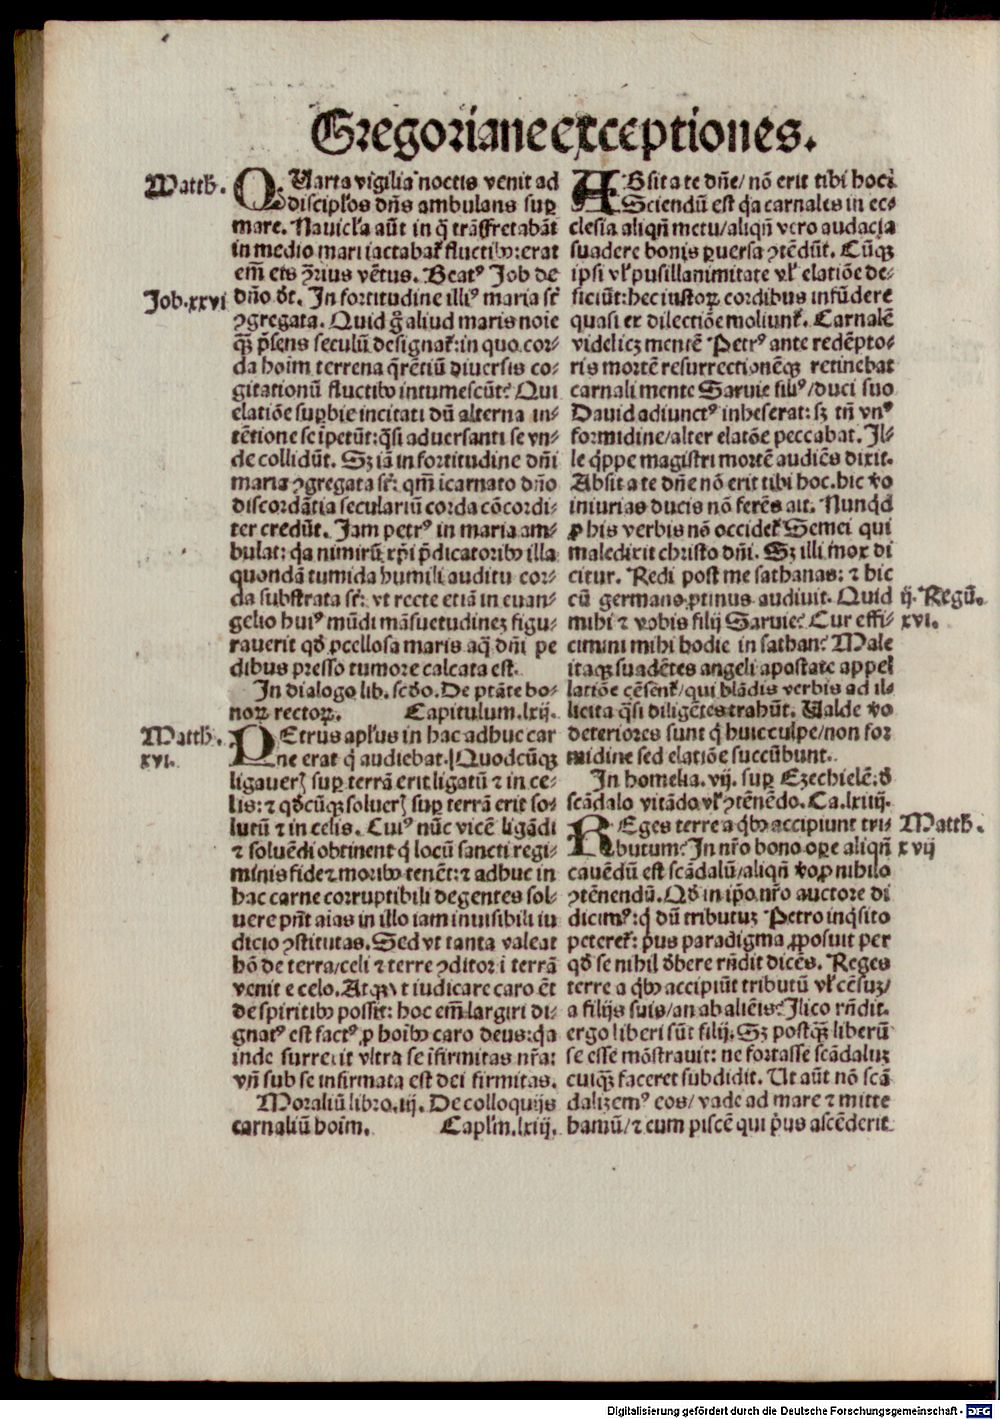 Gregoriane exceptiones.
Matth.
QUarta vigilia noctis venit ad
discipłos dn̄s ambulans suꝑ
mare. Nauicła aūt in q̄ trāffretabāt
in medio mari iactabat᷑ fluctibꝰ: erat
em̄ eis ꝯ̄trius vētus. Beatꝰ Job de
Job.xxvi
dn̄o d̄t. In fortitudine illiꝰ maria st̄
ꝯgregata. Quid g̃ aliud maris noīe
q̄ꝫ p̄sens seculū designat᷑: in quo cor⸗
da hoīm terrena q̄rētiū diuersis co⸗
gitationū fluctibꝰ intumescūt? Qui
elatiōe suꝑbie incitati dū alterna in⸗
tētione se īpetūt: q̄si aduersanti se vn⸗
de collidūt. Sꝫ iā in fortitudine dn̄i
maria ꝯgregata st̄: qm̄ īcarnato dn̄o
discordātia seculariū corda cōcordi⸗
ter credūt. Jam petrꝰ in maria am⸗
bulat: q̄a nimirū xp̄i p̄dicatoribꝰ illa
quondā tumida humili auditu cor⸗
da substrata st̄: vt recte etiā in euan⸗
gelio huiꝰ mūdi māsuetudinez figu⸗
rauerit qd̄ ꝓcellosa maris aq̄ dn̄i pe
dibus presso tumore calcata est.
In dialogo lib. scd̄o. De ptāte bo⸗
noꝝ rectoꝝ. Capitulum.lxij.
Matth.
xvi.
PEtrus apłus in hac adhuc car
ne erat q̄ audiebat. Quodcūqꝫ
ligauer̄ suꝑ terrā erit ligatū ⁊ in ce⸗
lis: ⁊ qd̄cūqꝫ soluer̄ suꝑ terrā erit so⸗
lutū ⁊ in celis. Cuiꝰ nūc vicē ligādi
⁊ soluēdi obtinent q̄ locū sancti regi⸗
minis fide ⁊ moribꝰ tenēt: ⁊ adhuc in
hac carne corruptibili degentes sol⸗
uere pn̄t aīas in illo iam inuisibili iu
dicio ꝯstitutas. Sed vt tanta valeat
hō de terra/celi ⁊ terre ꝯditor i terrā
venit e celo. Atqꝫ vt iudicare caro ēt
de spiritibꝰ possit: hoc em̄ largiri di⸗
gnatꝰ est factꝰ ꝓ hoībꝰ caro deus: q̄a
inde surrexit vltra se īfirmitas nr̄a:
vn̄ sub se infirmata est dei firmitas.
Moraliū libro.iij. De colloquijs
carnaliū hoīm. Capłm.lxiij.
ABsit a te dn̄e/ nō erit tibi hoc:
Sciendū est q̄a carnales in ec⸗
clesia aliqn̄ metu/aliqn̄ vero audacia
suadere bonis ꝑuersa ꝯtēdūt. Cūqꝫ
ipsi vł pusillanimitate vł elatiōe de⸗
ficiūt: hec iustoꝝ cordibus infūdere
quasi ex dilectiōe moliunt᷑. Carnalē
videlicꝫ mentē Petrꝰ ante redēpto⸗
ris mortē resurrectionēqꝫ retinebat
carnali mente Saruie filiꝰ/duci suo
Dauid adiunctꝰ inheserat: sꝫ tn̄ vnꝰ
formidine/alter elatōe peccabat. Il⸗
le q̄ppe magistri mortē audiēs dixit.
Absit a te dn̄e nō erit tibi hoc. hic v̄o
iniurias ducis nō ferēs ait. Nunqd̄
ꝓ his verbis nō occidet᷑ Semei qui
maledixit christo dn̄i. Sꝫ illi mox di
citur. Redi post me sathanas: ⁊ hic
cū germano ꝓtinus audiuit. Quid
ij. Regū.
xvi.
mihi ⁊ vobis filij Saruie? Cur effi⸗
cimini mihi hodie in sathan? Male
itaqꝫ suadētes angeli apostate appel
latiōe cēsent᷑/qui blādis verbis ad il⸗
licita q̄si diligētes trahūt. Valde v̄o
deteriores sunt q̄ huic culpe/non for
midine sed elatiōe succūbunt.
In homelia. vij. suꝑ Ezechielē: d̄
scādalo vitādo vł ꝯtēnēdo. Ca.lxiiij.
Matth.
xvij
REges terre a q̄bꝰ accipiunt tri⸗
butum? In nr̄o bono oꝑe aliqn̄
cauēdū est scādalū/aliqn̄ v̄o ꝓ nihilo
ꝯtēnendū. Qd̄ in ip̄o nr̄o auctore di
dicimꝰ: q̄ dū tributuz Petro inq̄sito
peteret᷑: p̄us paradigma ꝓposuit per
qd̄ se nihil d̄bere rn̄dit dicēs. Reges
terre a q̄bꝰ accipiūt tributū vł cēsuꝫ/
a filijs suis/an ab aliēis? Ilico rn̄dit.
ergo liberi sūt filij. Sꝫ postqꝫ̄ liberū
se esse mōstrauit: ne fortasse scādaluꝫ
cuiqꝫ̄ faceret subdidit. Ut aūt nō scā
dalizemꝰ eos/ vade ad mare ⁊ mitte
hamū/⁊ eum piscē qui p̄us ascēderit
Digitalisierung gefördert durch die Deutsche Forschungsgemeinschaft - DFG